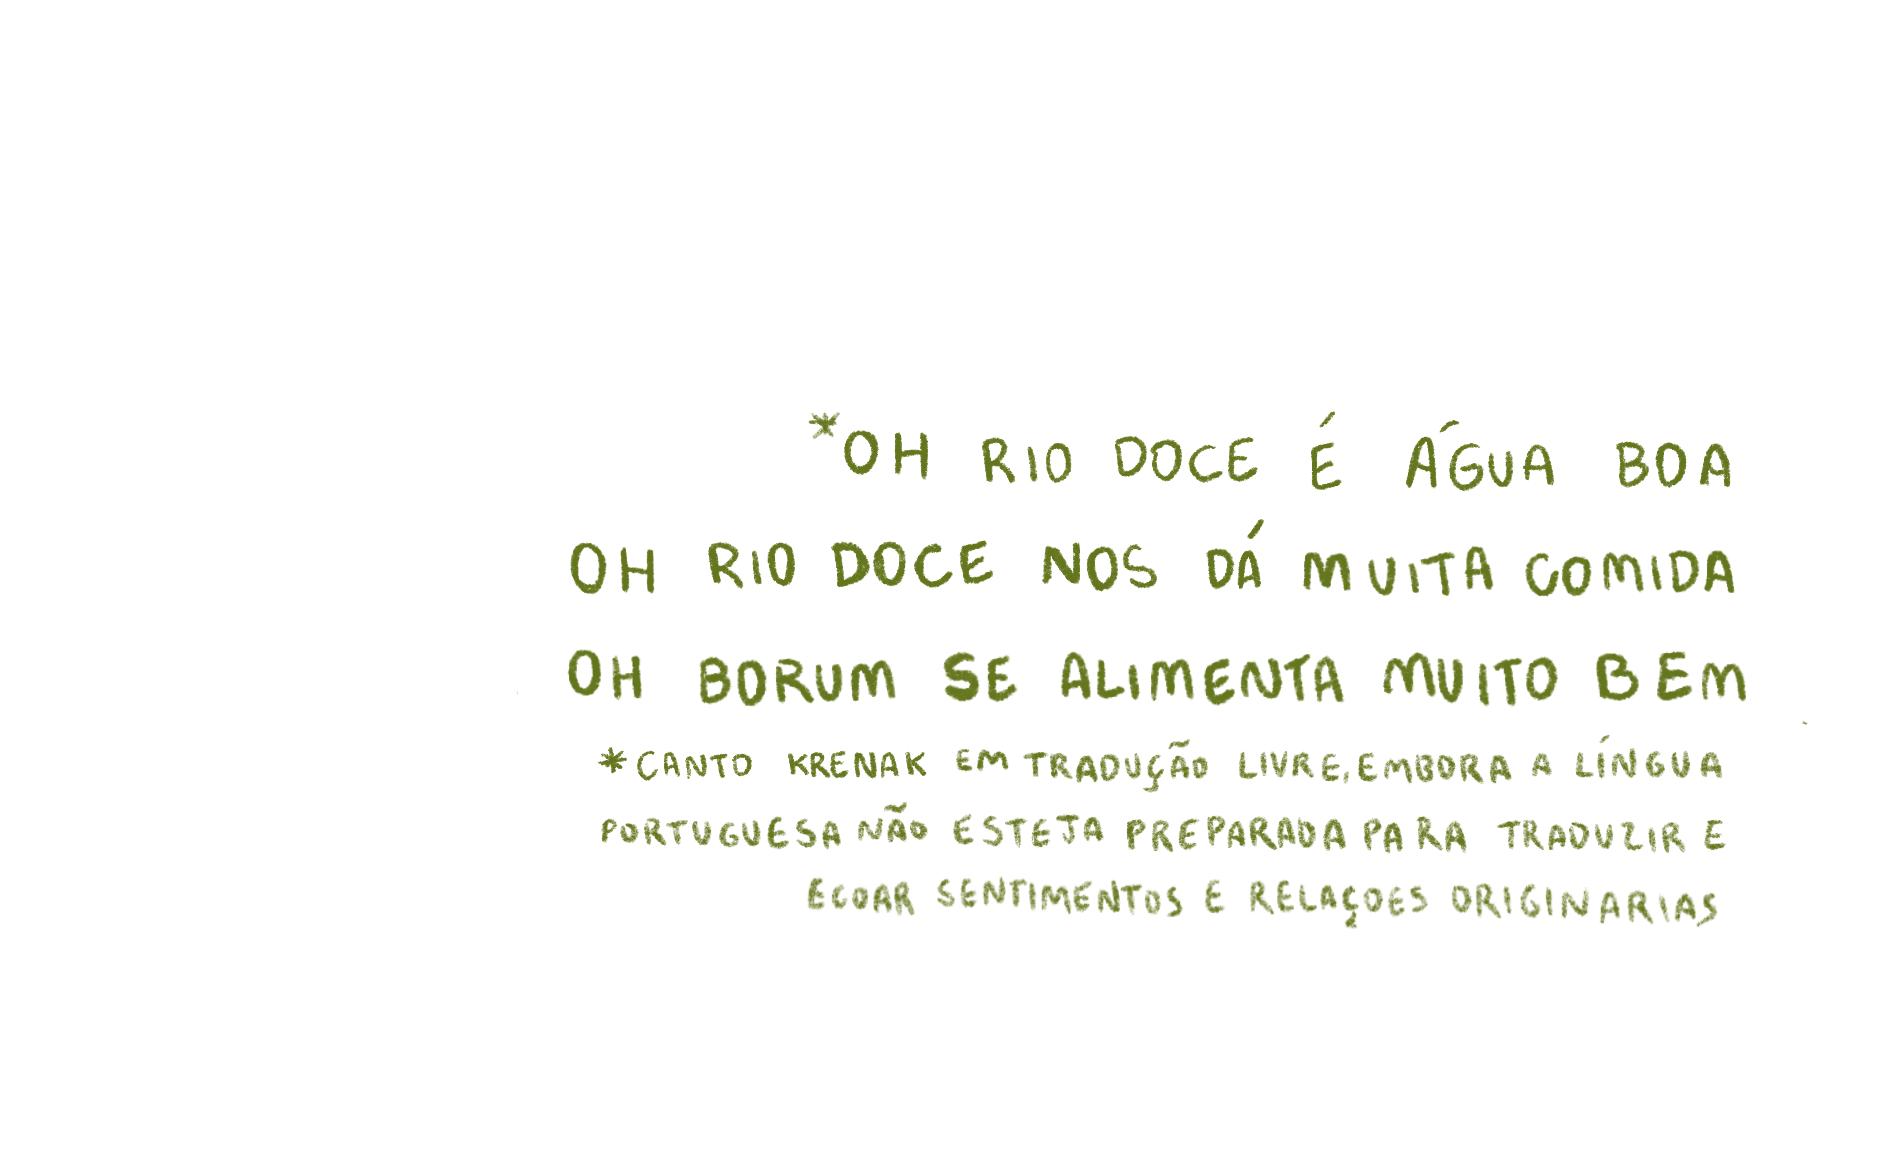 *OH RIO DOCE É ÁGUA BOA
OH RIO DOCE NOS DÁ MUITA COMIDA
OH BORUM SE ALIMENTA MUITO BEM
*CANTO KRENAK EM TRADUÇÃO LIVRE, EMBORA A LÍNGUA
PORTUGUESA NÃO ESTEJA PREPARADA PARA TRADUZIR E
ECOAR SENTIMENTOS E RELAÇOES ORIGINARIAS